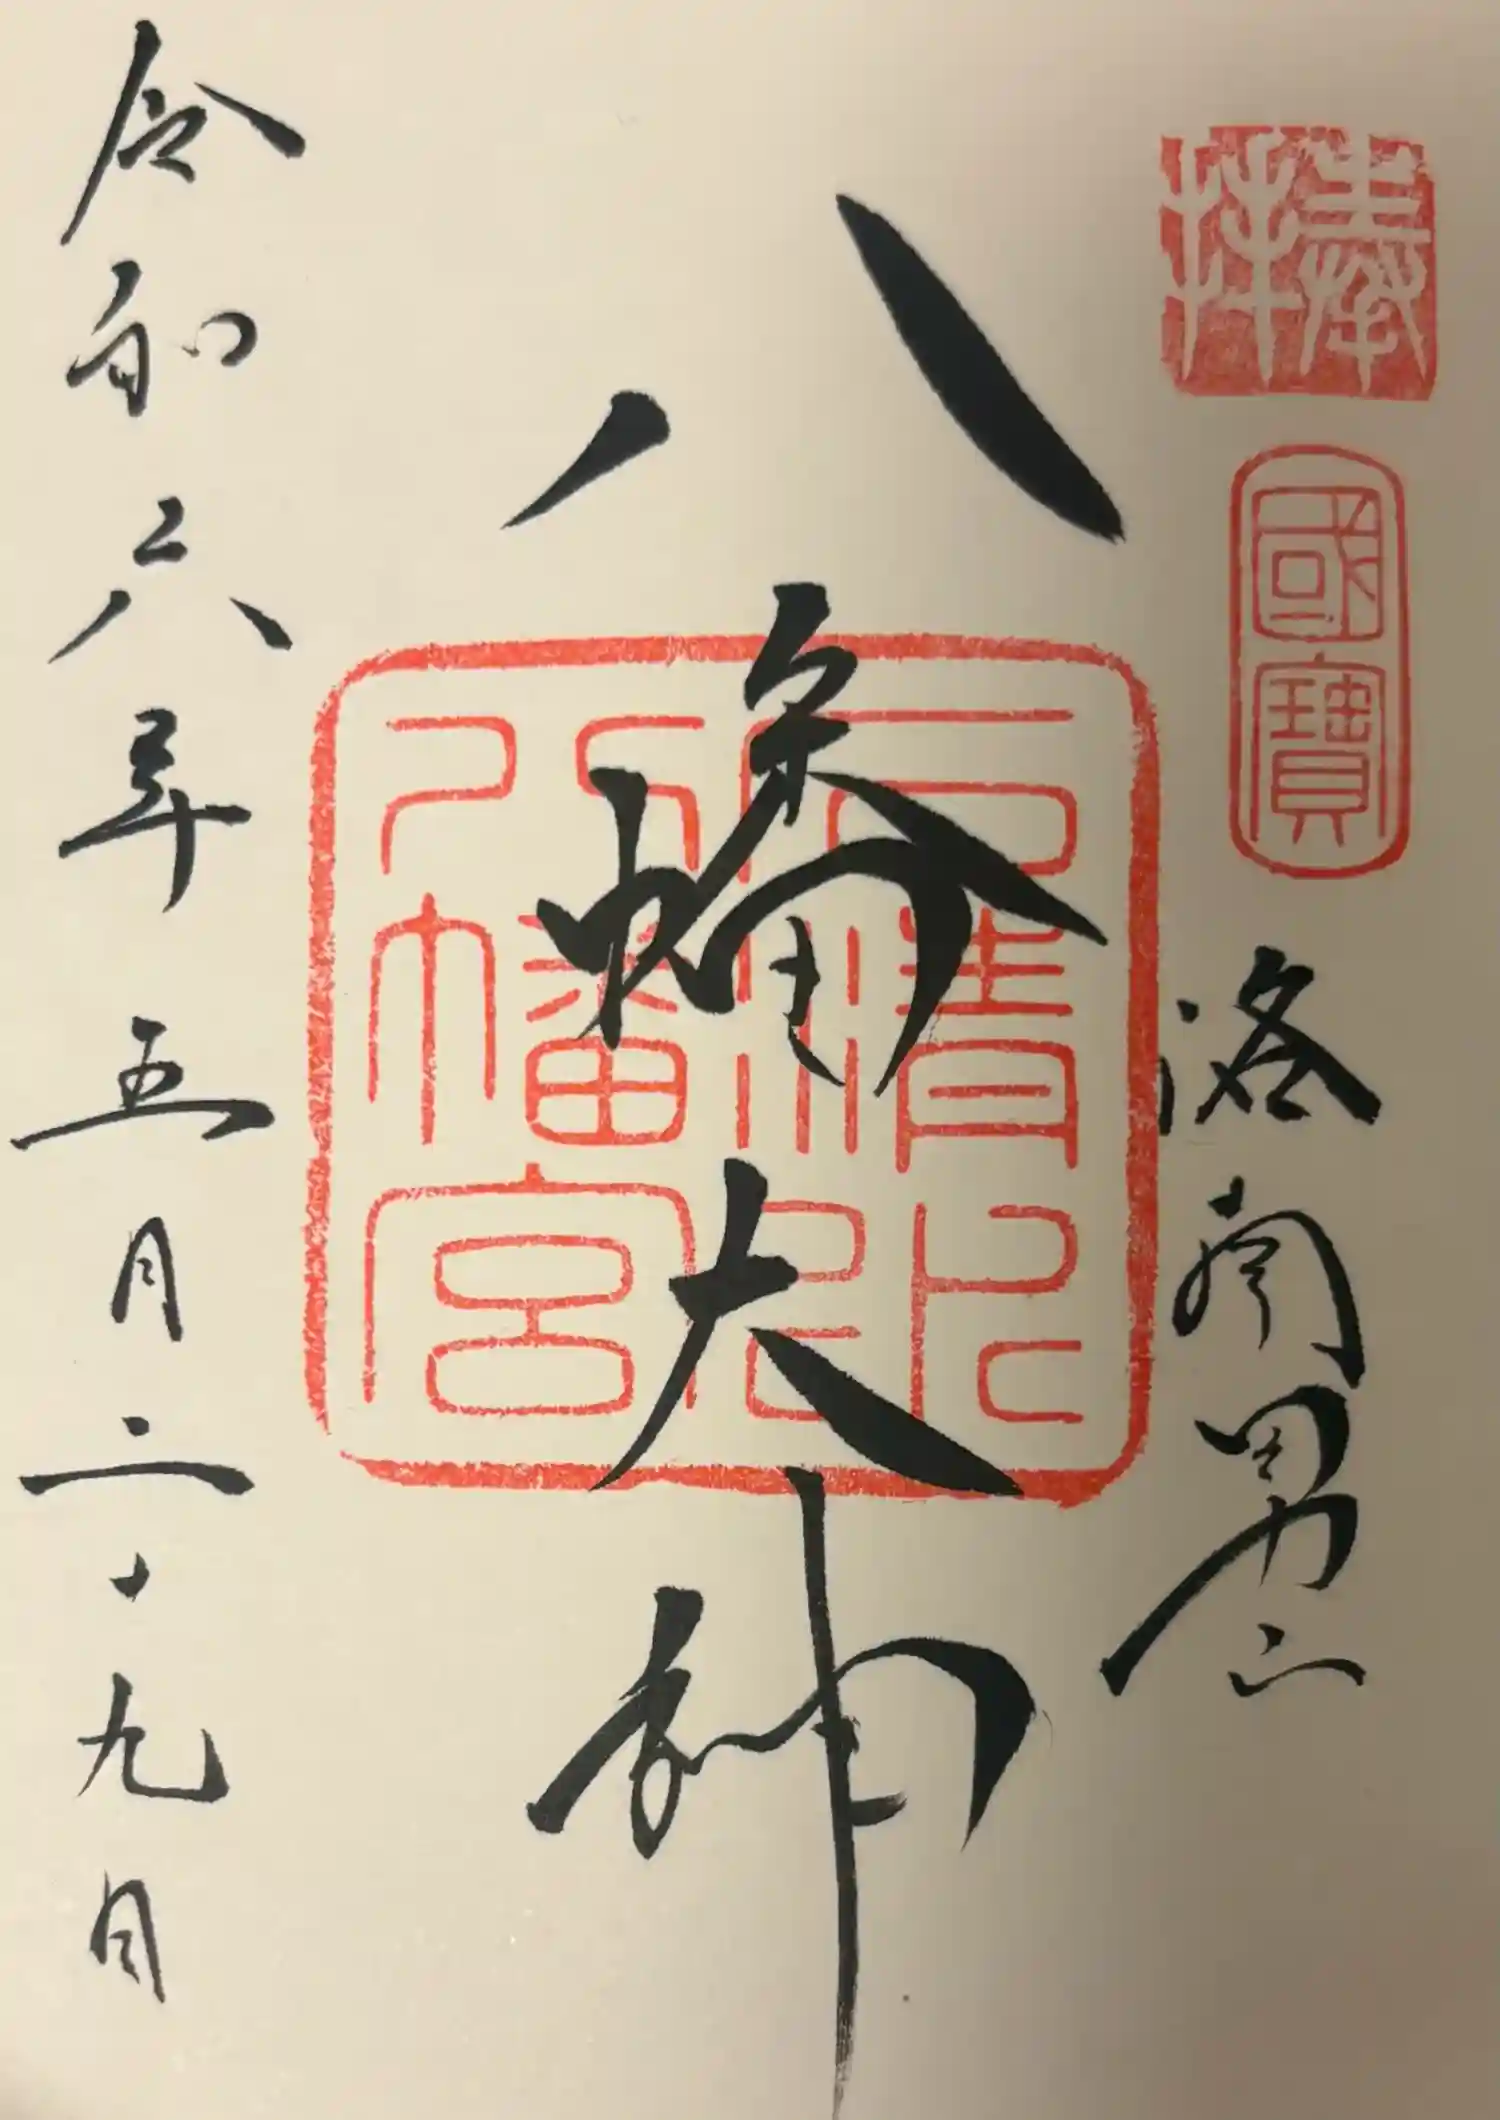 奉拝
國寶
洛南男山
八幡大神
石清水八幡宮印
令和六年五月二十九日